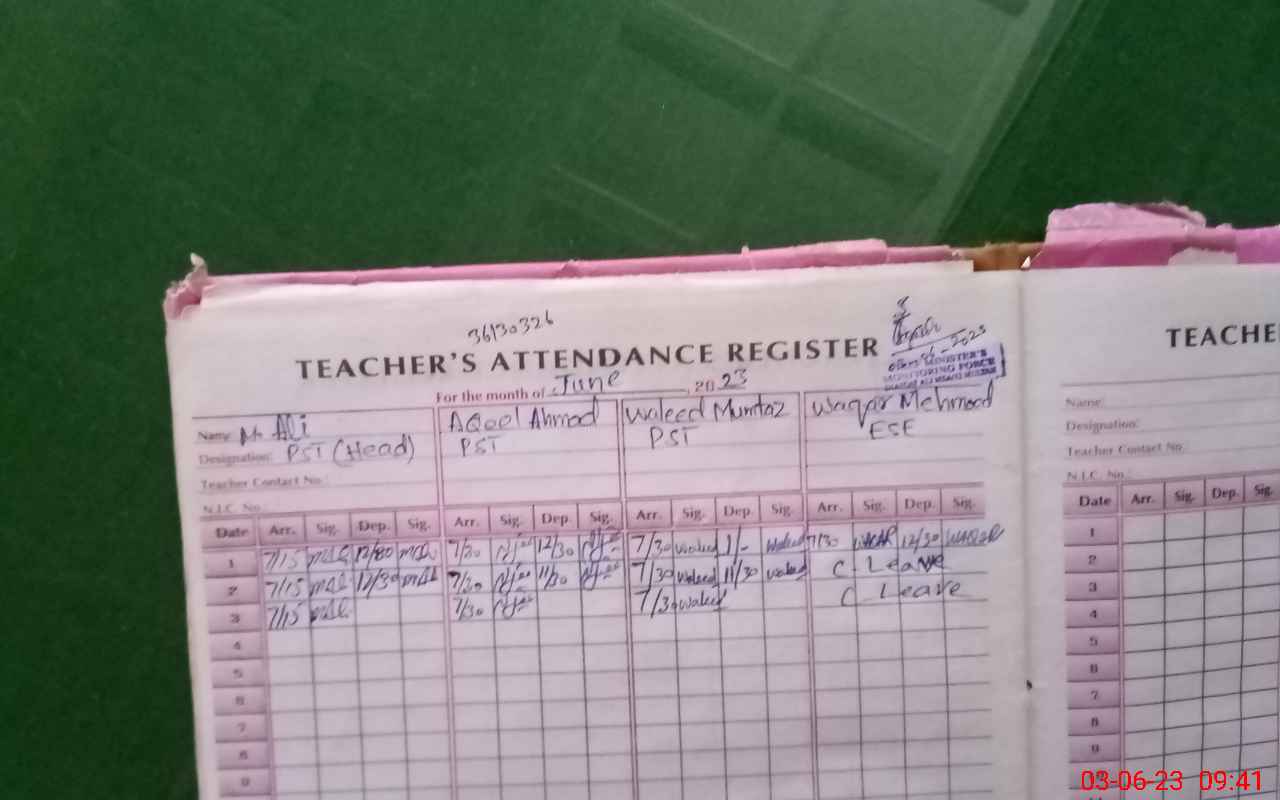 36130326
TEACHER'S ATTENDANCE REGISTER
For the month of June, 2023
MINISTER'S
MONITORING FORCE
Name: Mr Ali
Designation: PST (Head)
Teacher Contact No.:
N.I.C. No.:
AQeel Ahmad
PST
Waleed Mumtaz
PST
Waqar Mehmood
ESE
Date Arr. Sig. Dep. Sig. Arr. Sig. Dep. Sig. Arr. Sig. Dep. Sig. Arr. Sig. Dep. Sig.
1 7/15 12/30 7/30 12/30 7/30 waleed 1/- Waleed 7/30 WAQAR 12/30 WAQAR
2 7/15 11/30 7/30 11/30 7/30 Waleed 11/30 waleed C Leave
3 7/15 7/30 7/30 waleed C Leave
4
5
6
7
8
9
TEACHE
Name:
Designation:
Teacher Contact No.:
N.I.C. No.:
Date Arr. Sig. Dep. Sig.
1
2
3
4
5
6
7
8
9
03-06-23 09:41